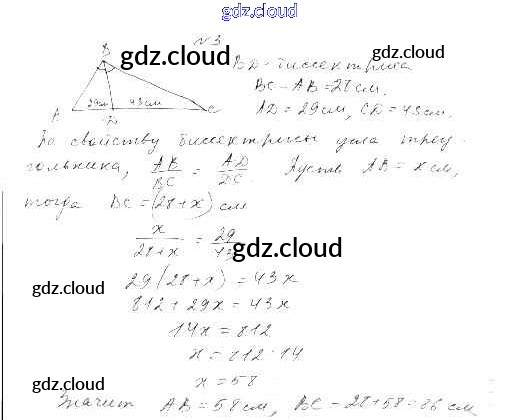 gdz.cloud
N 3
gdz.cloud
B
BD - биссектриса
gdz.cloud
BC - AB = 28 см.
AD = 29 см, CD = 43 см.
29см 43 см
A D C
По свойству биссектрисы угла треу-
гольника, AB/BC = AD/DC. Пусть AB = x см,
gdz.cloud
тогда BC = (28 + x) см
x/(28 + x) = 29/43
gdz.cloud
29(28 + x) = 43x
gdz.cloud
812 + 29x = 43x
14x = 812
x = 812 : 14
gdz.cloud
x = 58
gdz.cloud
Значит AB = 58 см, BC = 28 + 58 = 86 см